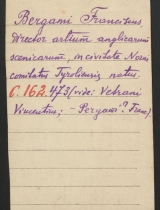 Bergani Franciscus
director artium anglicarum
scenicarum, in civitate Novi
comitatus Tyroliensis natus.
C. 162. 473 (vide: Vebrani
Vincentius; - Pergami? Franc)